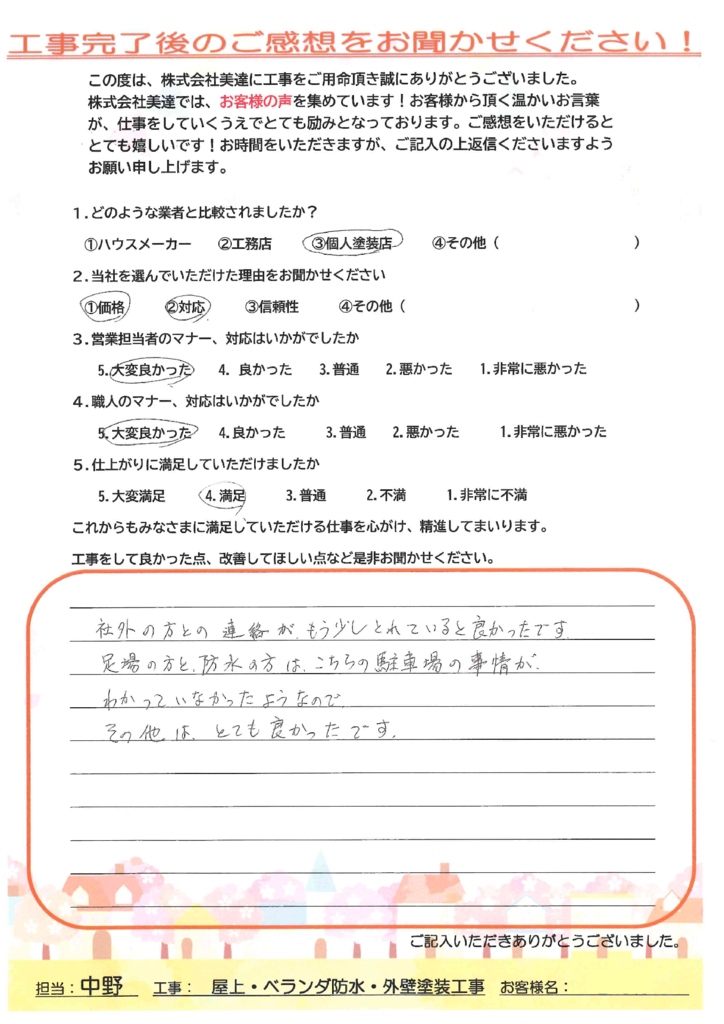 工事完了後のご感想をお聞かせください！
この度は、株式会社美達に工事をご用命頂き誠にありがとうございました。
株式会社美達では、お客様の声を集めています！お客様から頂く温かいお言葉
が、仕事をしていくうえでとても励みとなっております。ご感想をいただけると
とても嬉しいです！お時間をいただきますが、ご記入の上返信くださいますよう
お願い申し上げます。
1.どのような業者と比較されましたか？
①ハウスメーカー ②工務店 ③個人塗装店 ④その他（ ）
2.当社を選んでいただけた理由をお聞かせください
①価格 ②対応 ③信頼性 ④その他（ ）
3.営業担当者のマナー、対応はいかがでしたか
5.大変良かった 4. 良かった 3.普通 2.悪かった 1.非常に悪かった
4.職人のマナー、対応はいかがでしたか
5.大変良かった 4.良かった 3.普通 2.悪かった 1.非常に悪かった
5.仕上がりに満足していただけましたか
5.大変満足 4.満足 3.普通 2.不満 1.非常に不満
これからもみなさまに満足していただける仕事を心がけ、精進してまいります。
工事をして良かった点、改善してほしい点など是非お聞かせください。
社外の方との連絡が、もう少しとれていると良かったです
足場の方と、防水の方は、こちらの駐車場の事情が、
わかっていなかったようなので、
その他は、とても良かったです。
ご記入いただきありがとうございました。
担当：中野 工事： 屋上・ベランダ防水・外壁塗装工事 お客様名：